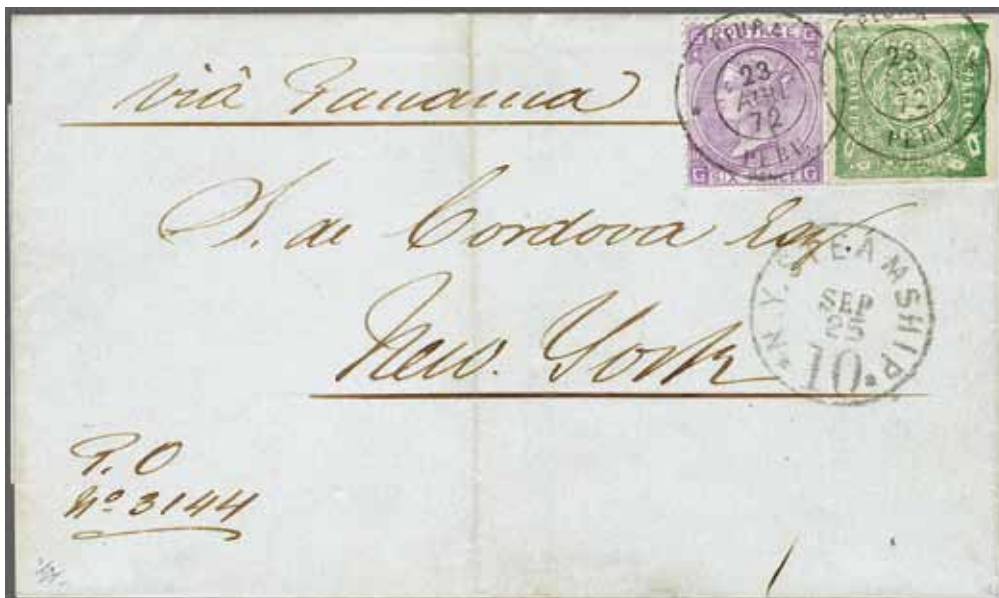 viâ Panama
PIURA
23
72
PERU
SIX PENCE
PIURA
23
72
PERU
S. de Cordova Esq.
New. York
N.Y. STEAMSHIP
SEP
25
10
P. O
Nº 3144